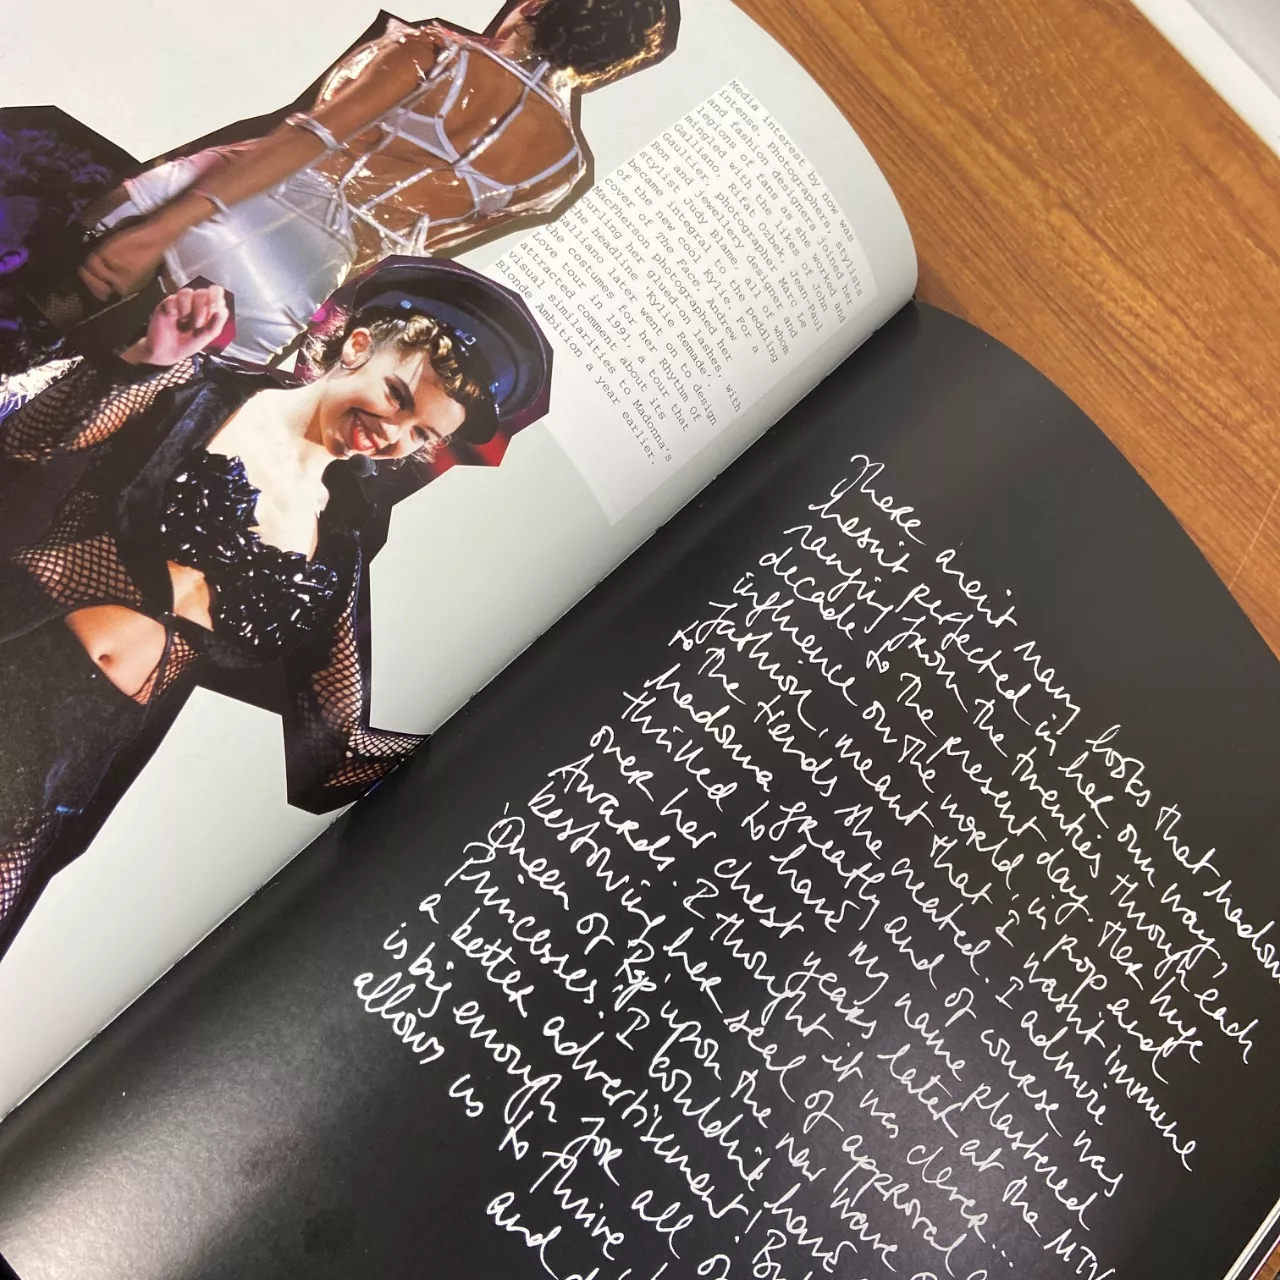 Media interest by now was
intense. Photographers, stylists
and fashion designers joined her
legions of fans as she worked and
mingled with the likes of John
Galliano, Rifat Ozbek, Jean-Paul
Gaultier, photographer Marc Le
Bon and jewellery designer and
stylist Judy Blame, all of whom
became integral to the peddling
of the new cool Kylie. For a
cover of The Face, Andrew
MacPherson photographed her
curling her glued-on lashes, with
the headline 'Kylie Remade'.
Galliano later went on to design
the costumes for her Rhythm Of
Love tour in 1991, a tour that
attracted comment about its
visual similarities to Madonna's
Blonde Ambition a year earlier.
There aren't many looks that Madonna
hasn't perfected in her own way,
ranging from the twenties through each
decade to the present day. Her huge
influence on the world, in pop and
fashion, meant that I wasn't immune
to the trends she created. I admire
Madonna greatly and of course was
thrilled to have my name plastered
over her chest years later at the MTV
Awards. I thought it was clever...
bestowing her seal of approval
'Queen of Pop' upon the new wave
Princesses. I couldn't have
a better advertisement! But
is big enough for all of
allows us to thrive
and